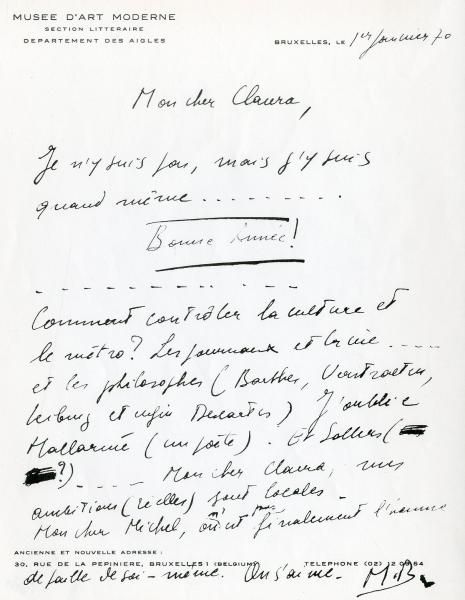 MUSEE D'ART MODERNE
SECTION LITTERAIRE
DEPARTEMENT DES AIGLES
BRUXELLES, LE 1er Janvier 70
Mon cher Claura,
Je n'y suis pas, mais j'y suis
quand même ..........
Bonne Année!
Comment contrôler la culture et
le métro? Les journaux et la vie ....
et les philosophes (Barthes,
Leibniz et enfin Descartes) J'oublie
Mallarmé (un poète). Et Sollers (
?) _ _ _ _ _ Mon cher Claura, mes
ambitions (réelles) sont locales _
Mon cher Michel, finalement l'énorme
ANCIENNE ET NOUVELLE ADRESSE :
30, RUE DE LA PEPINIERE, BRUXELLES 1 (BELGIUM) TELEPHONE (02) 12 09 54
de soi-même. On s'aime. M.B.